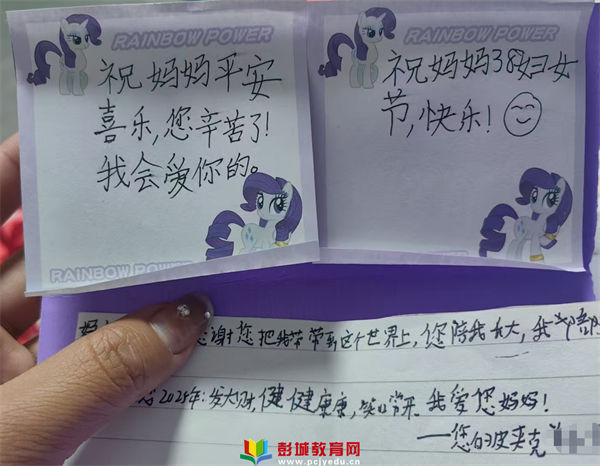 RAINBOW POWER
祝妈妈平安
喜乐,您辛苦了!
我会爱你的。
RAINBOW POWER
RAINBOW POWER
祝妈妈38妇女
节,快乐!
RAINBOW POWER
妈
谢您把我带到这个世界上,您陪我长大,我陪
2025年:发大财,健健康康,笑口常开 我爱您妈妈!
——您的皮夹克
彭城教育网
www.pcjyedu.cn